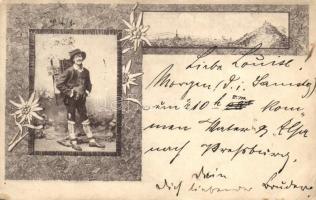 Liebe Louise!
Morgen (d. i. Samstg)
um 10 h kom-
men Vater &
nach Pressburg.
Dein
Dich liebender Bruder